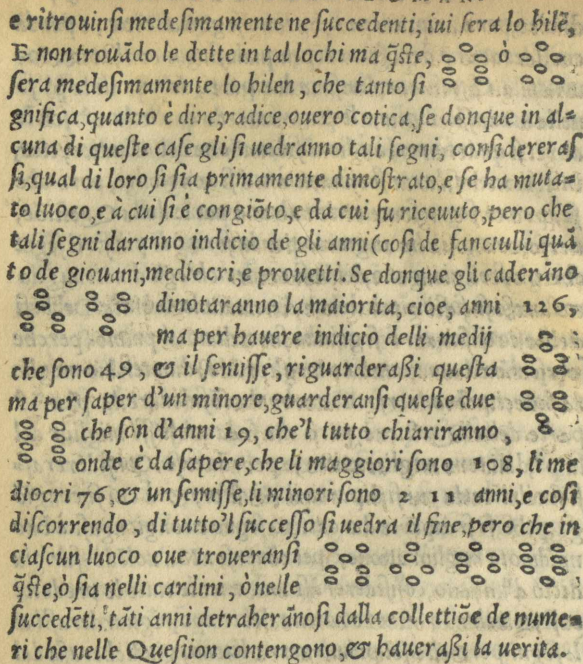 e ritrouinsi medesimamente ne succedenti, iui sera lo hilē,
E non trouādo le dette in tal lochi ma q̄ste, ò
sera medesimamente lo hilen, che tanto si
gnifica, quanto è dire, radice, ouero cotica, se donque in al=
cuna di queste case gli si uedranno tali segni, consideraras
si, qual di loro si sia primamente dimostrato, e se ha muta=
to luoco, e à cui si è congiōto, e da cui fu riceuuto, pero che
tali segni daranno indicio de gli anni (cosi de fanciulli quā
to de giouani, mediocri, e prouetti. Se donque gli caderāno
dinotaranno la maiorita, cioe, anni 126,
ma per hauere indicio delli medij
che sono 49, & il semisse, riguarderaßi questa
ma per saper d'un minore, guarderansi queste due
che son d'anni 19, che'l tutto chiariranno,
onde è da sapere, che li maggiori sono 108, li me
diocri 76, & un semisse, li minori sono 2 11 anni, e cosi
discorrendo, di tutto'l successo si uedra il fine, pero che in
ciascun luoco oue troueransi
q̄ste, ò sia nelli cardini, ò nelle
succedēti, tāti anni detraherānosi dalla collettiōe de nume=
ri che nelle Questiion contengono, & haueraßi la uerita.